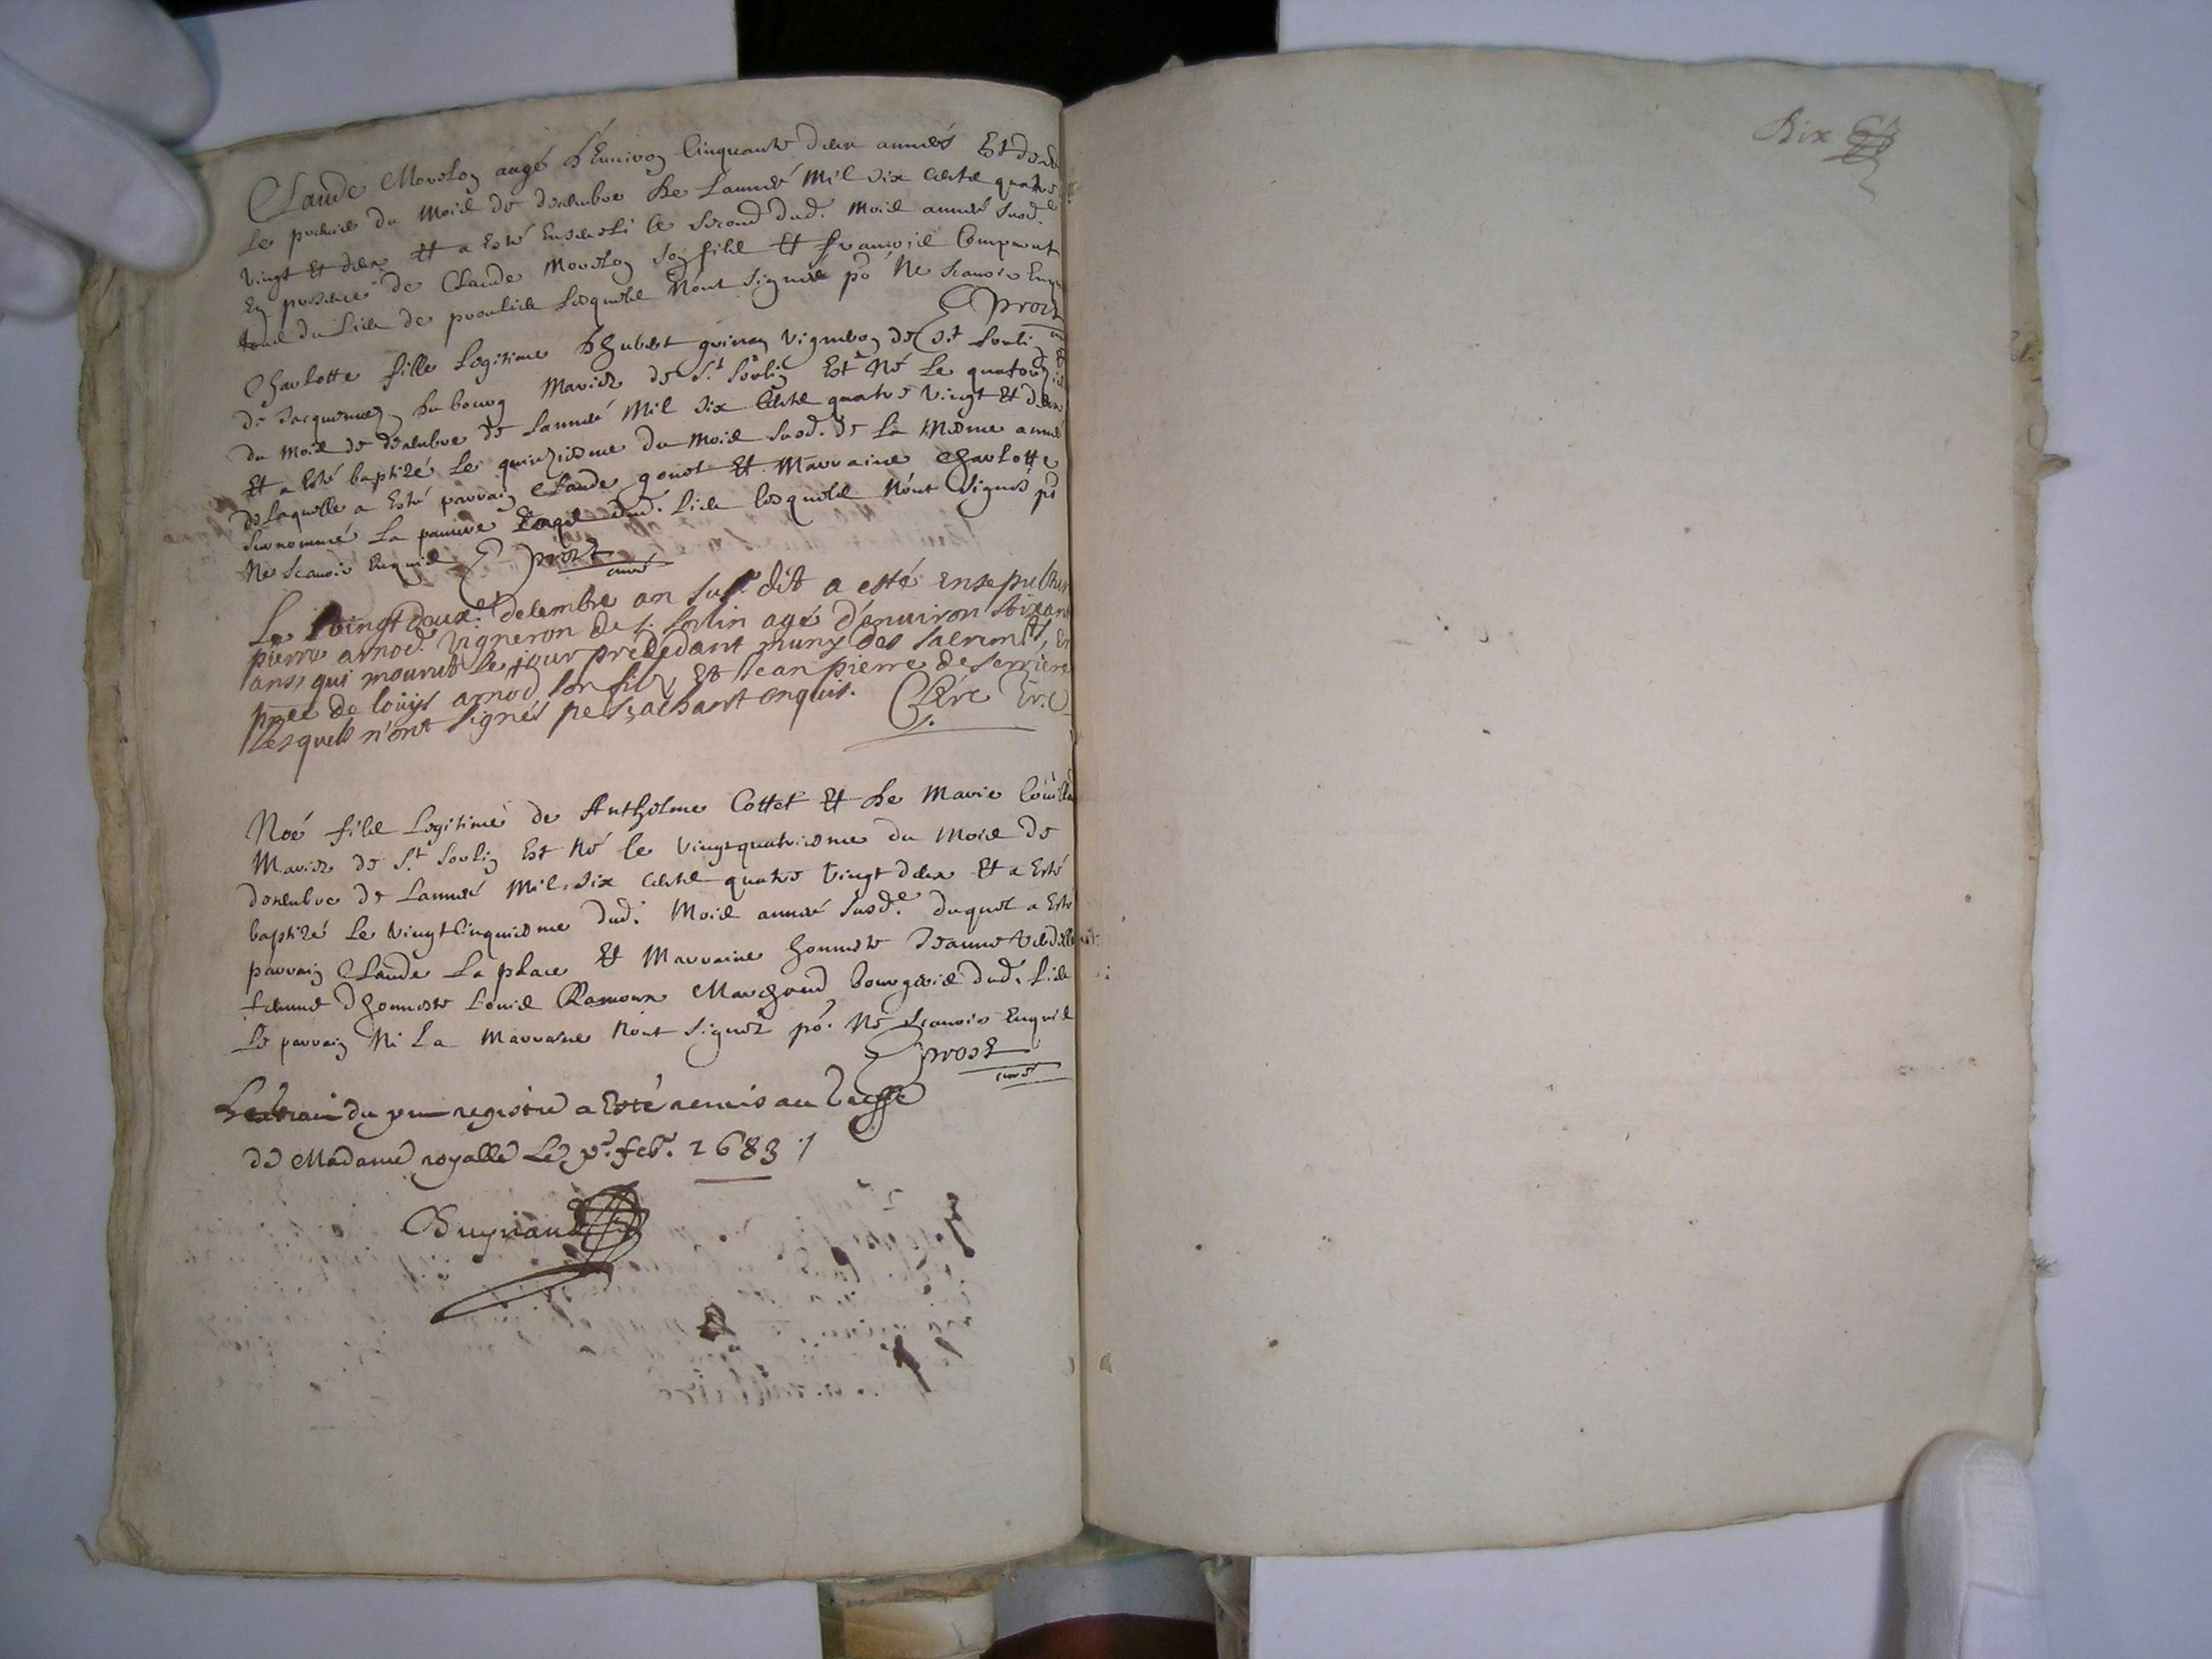 Claude Morelon aagé d'Environ Cinquante deux années Est
Le du mois de decembre de L'année Mil six cents quatre
vingt Et deux Et a Esté Ensevesli le second dud. mois année susd.e
En presence de Claude Morelon son fils Et françois
tous du Lieu de lesquels n'ont signés po.r Ne scavoir Enquis
Prost
curé
Charlotte fille Legitime d'hubert vigneron de St Sorlin Et
de du bourg Mariez de St Sorlin Est Né Le
du mois de decembre de L'année Mil six cents quatre vingt Et deux
Et a Esté baptizé Le quinziesme du mois susd. de La Mesme année
de Laquelle a Esté parrain Claude gonot Et Marraine Charlotte
surnommé La dud. Lieu lesquels n'ont signés po.r
Ne scavoir Enquis Prost
curé
Le vingt deux.e decembre an susdit a esté ensepulturé
pierre arnod vigneron de S. Sorlin agé d'environ soixante
ans, qui mourut le jour précédant muny des sacremts, En
pnce de loüys arnod son fils, Et Jean pierre deserriere
Lesquels n'ont signés ne sçachant enquis.
Noé fils Legitime de Anthelme Cottet Et de Marie
Mariez de St Sorlin Est Né le vingtquatriesme du Mois de
decembre de L'année Mil six cents quatre vingt deux Et a Esté
baptizé Le vingtcinquiesme dud. Mois année susd.e duquel a Esté
parrain Claude La place Et Marraine honneste Jeanne
femme d'honneste Louis Ramoux Marchand bourgeois dud. Lieu
Le parrain Ni La Marraine n'ont signéz po.r Ne scavoir Enquis
Prost
curé
L'extrait du registre a Esté remis au Greffe
de Madame royalle Le feb. 1683 /
Dix